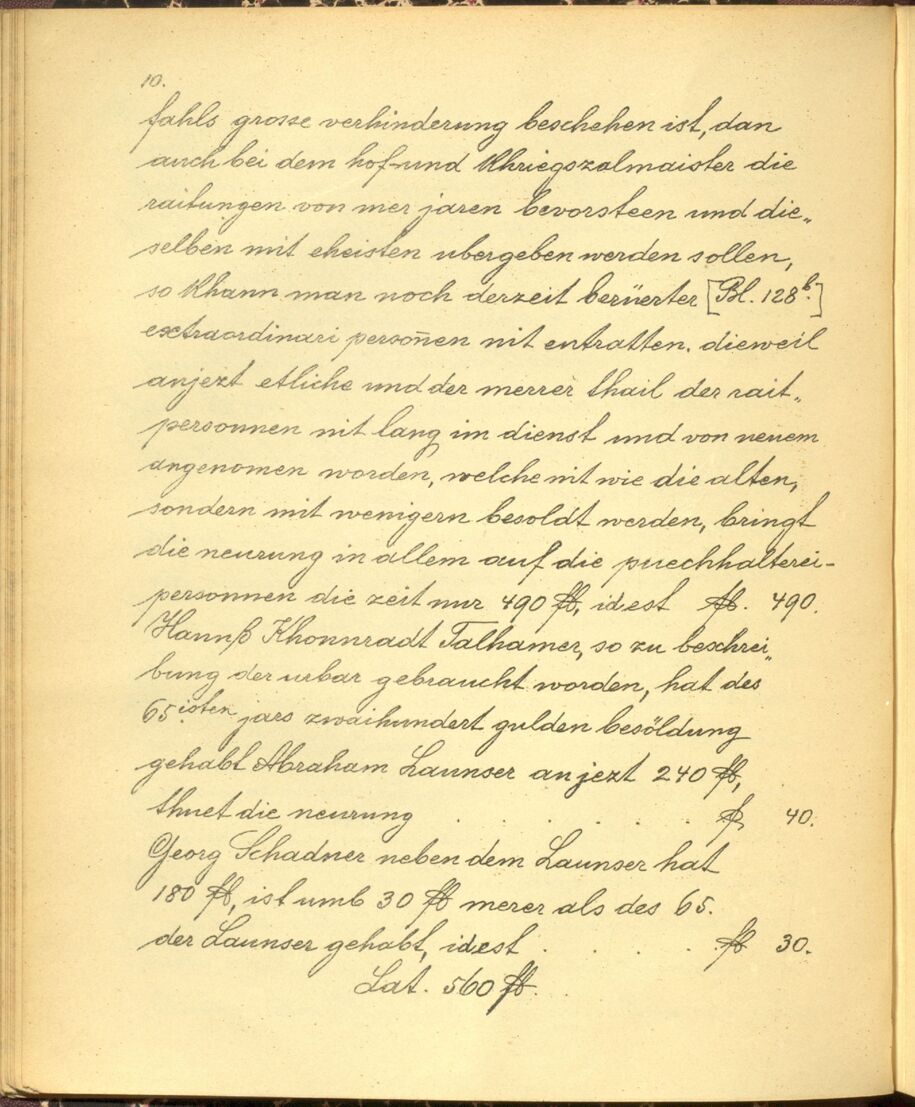 10.
fahls grosse verhinderung beschehen ist, dan
auch bei dem hof-und Khriegszalmaister die
raitungen von mer jaren bevorsteen und die„
selben mit eheisten ubergeben werden sollen,
so Khann man noch derzeit berüerter [Bl. 128b.]
extraordinari persoñen nit entratten. dieweil
anjezt etliche und der merrer thail der rait„
personnen nit lang im dienst und von neuem
angenomen worden, welche nit wie die alten,
sondern mit wenigern besoldt werden, bringt
die neurung in allem auf die puechhalterei-
personnen die zeit nur 490 fl, idest fl. 490.
Hannß Khonnradt Talhamer, so zu beschrei„
bung der urbar gebraucht worden, hat des
65isten jars zwaihundert gulden besöldung
gehabt Abraham Launser anjezt 240 fl,
thuet die neurung . . . . . . fl 40.
Georg Schadner neben dem Launser hat
180 fl, ist umb 30 fl merer als des 65.
der Launser gehabt, idest . . . . fl 30.
Lat. 560 fl.